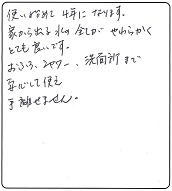 使いはじめて4年になります。
家から出る水の全てがやわらかく
とても良いです。
おふろ、シャワー、洗面所まで
安心して使え
手離せません。